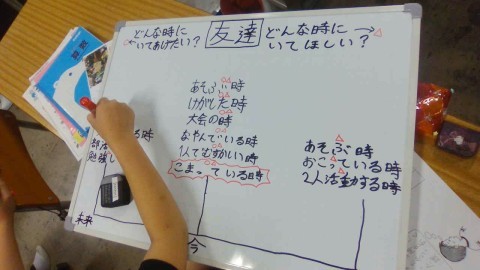 どんな時に
いてあげたい？
友達
どんな時に
いてほしい？
あそぶ時
けがした時
大会の時
なやんでいる時
1人でむずかしい時
こまっている時
る時
勉強し
あそぶ時
おこっている時
2人活動する時
未来
今